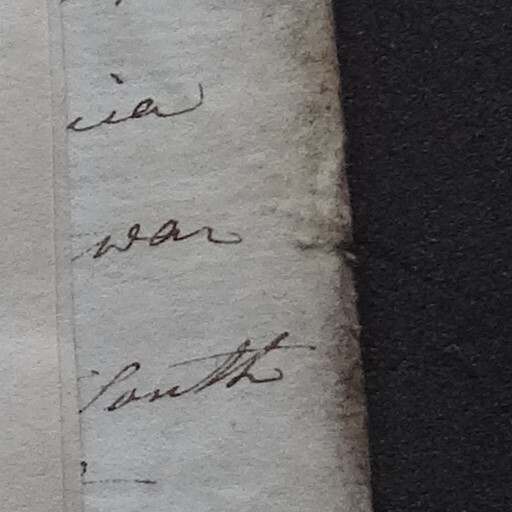 ia
war
South